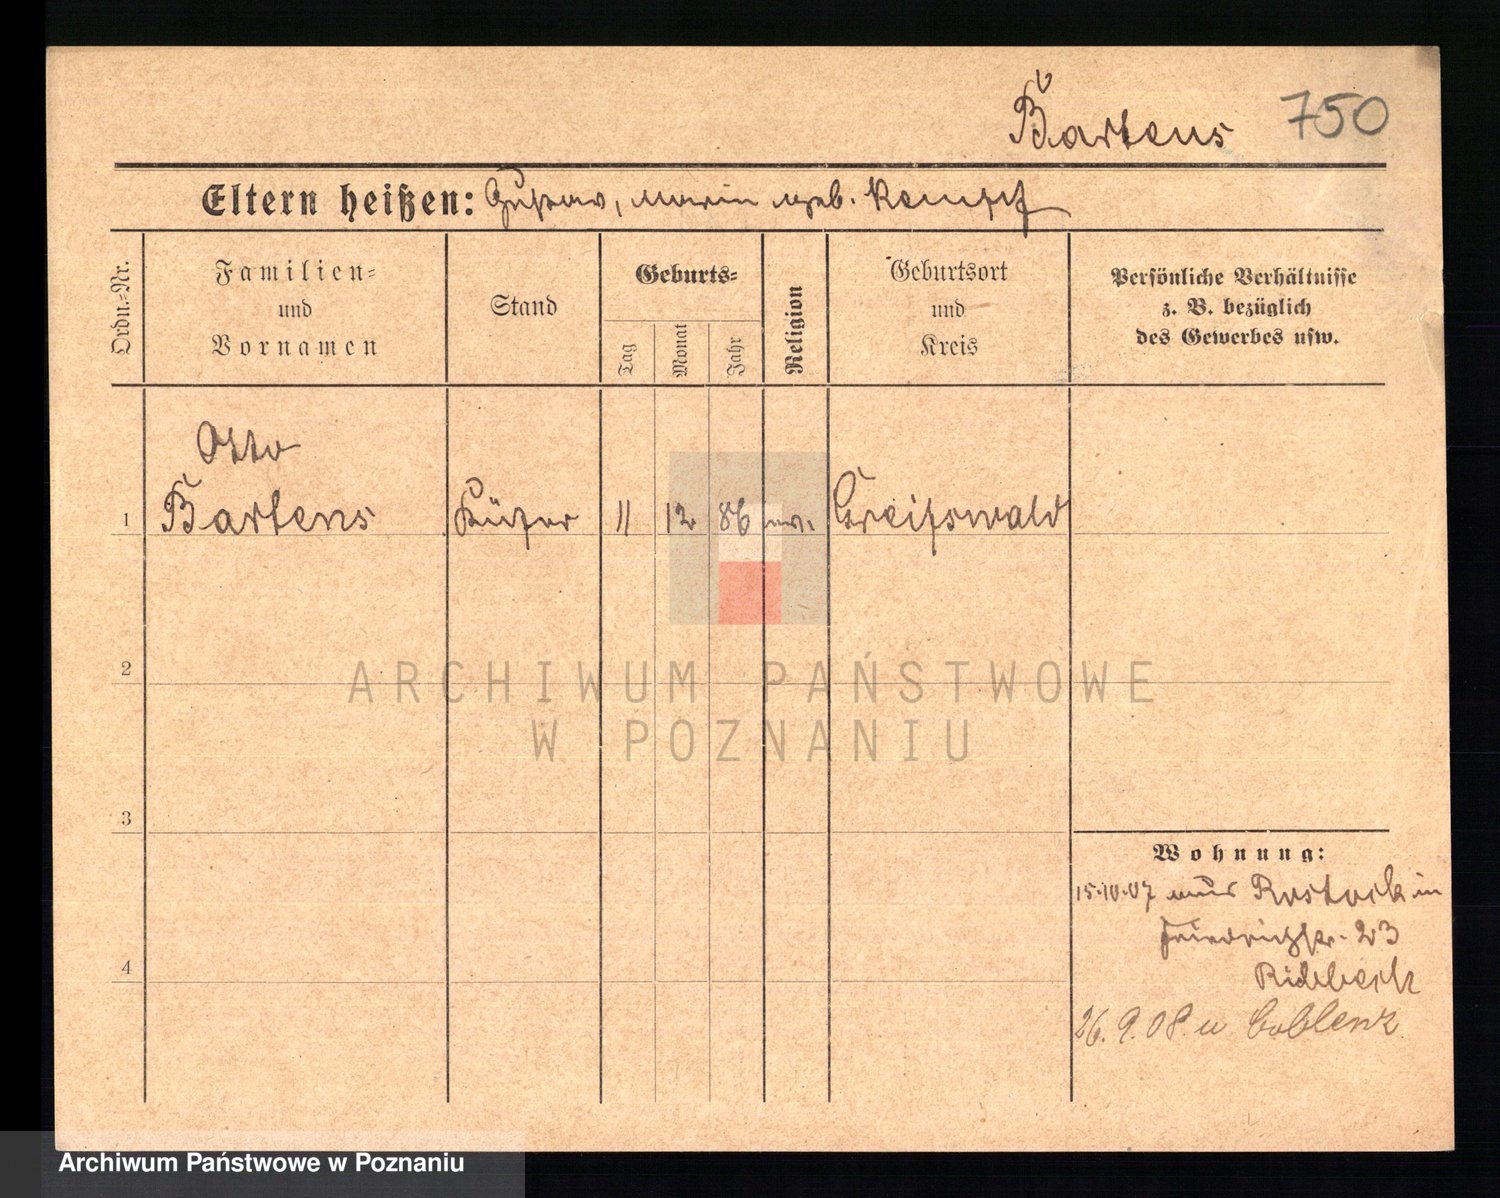 Bartens 750
Eltern heißen: Gustav, Marie geb. Kempf
Ordn.=Nr.
Familien=
und
Vornamen
Stand
Geburts=
Tag
Monat
Jahr
Religion
Geburtsort
und
Kreis
Persönliche Verhältnisse
z. B. bezüglich
des Gewerbes usw.
Otto
1 Bartens Küfer 11 12 86 ev. Greifswald
2
ARCHIWUM PAŃSTWOWE
W POZNANIU
3
Wohnung:
15.10.07 aus Rostock in
Friedrichstr. 23
26.9.08. n Coblenz
4
Archiwum Państwowe w Poznaniu